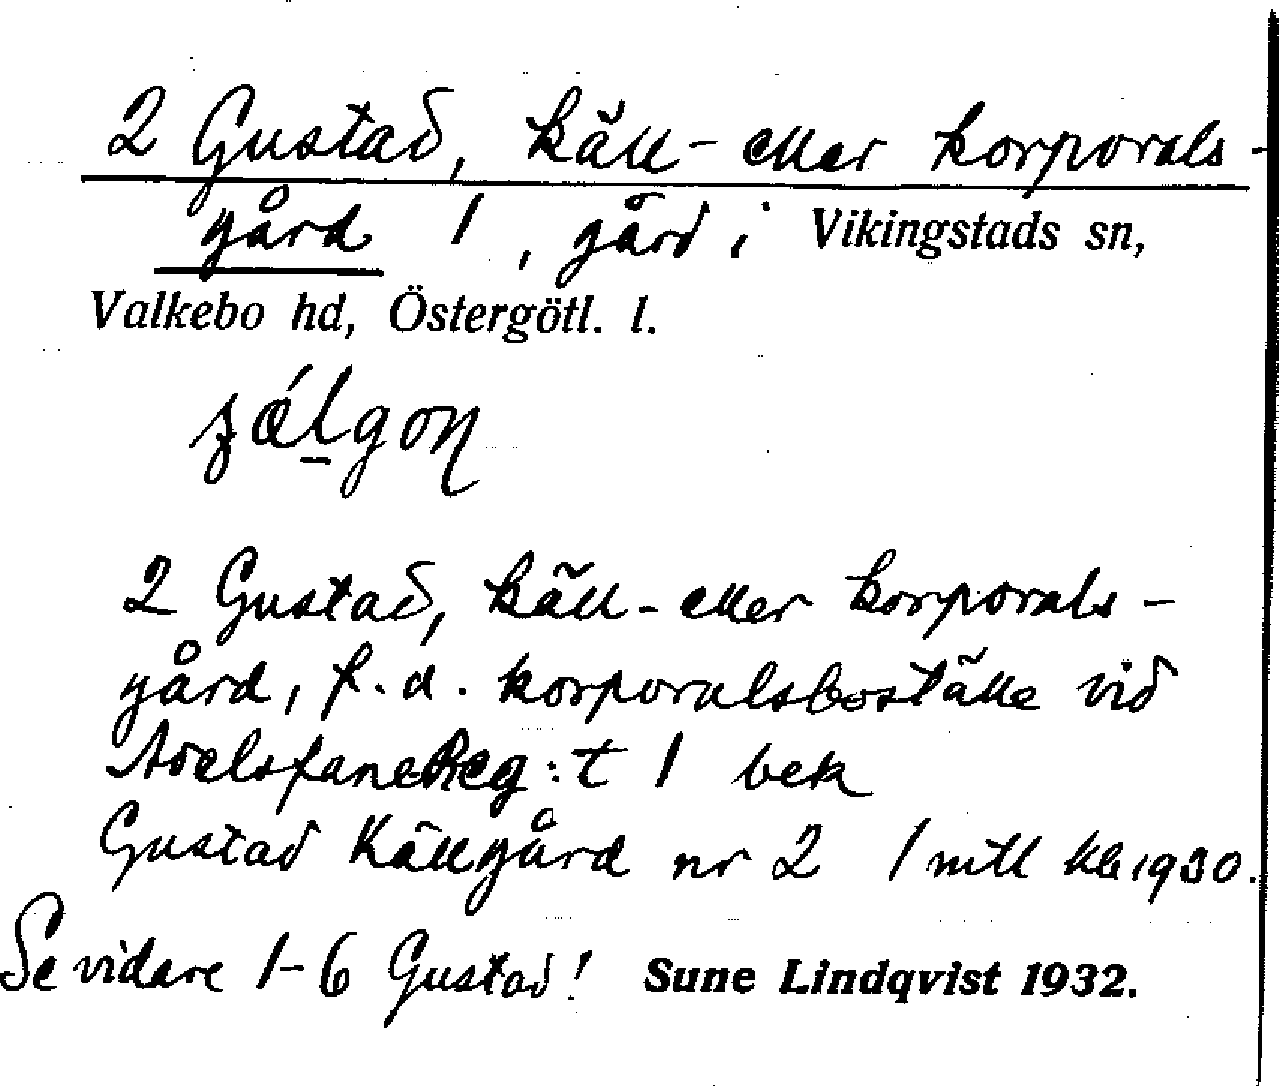 2 Gustad, Käll- eller korporals-
gård 1, gård i Vikingstads sn,
Valkebo hd, Östergötl. l.
2 Gustad, Käll- eller korporals-
gård, f. d. korporalsboställe vid
AdelsfaneReg:t 1 bek
Gustad Källgård nr 2 1 mtl KB 1930.
Se vidare 1-6 Gustad! Sune Lindqvist 1932.